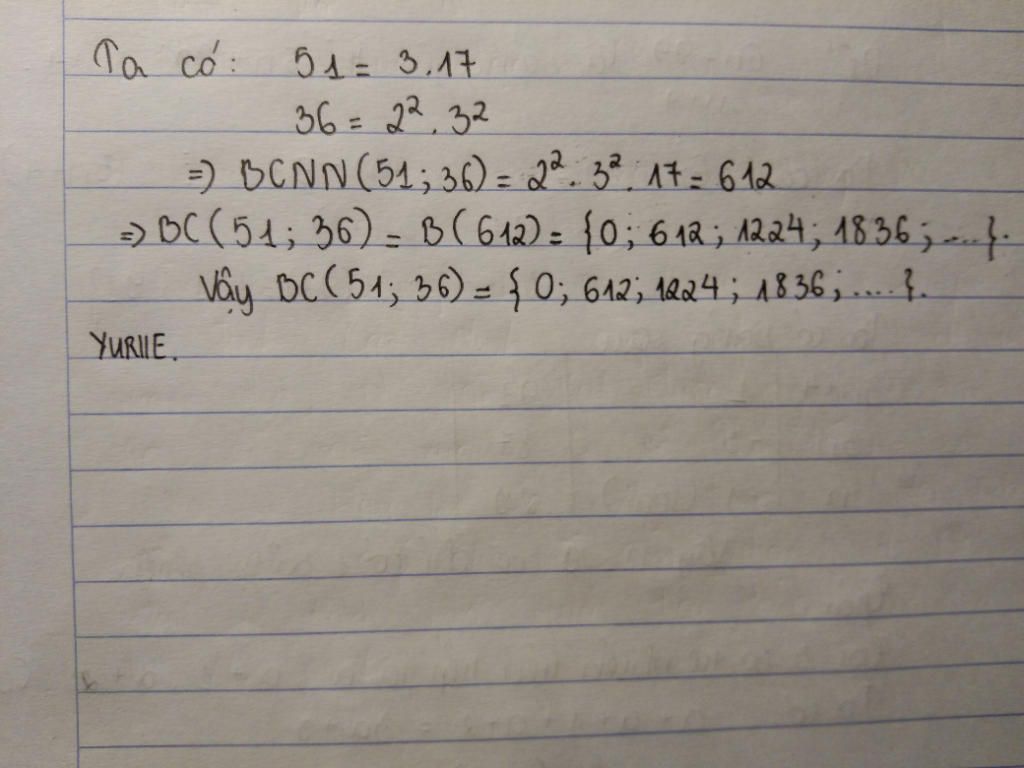 Ta có: 51 = 3.17
36 = 2². 3²
=> BCNN(51; 36) = 2². 3². 17 = 612
=> BC(51; 36) = B(612) = {0; 612; 1224; 1836; ....}.
Vậy BC(51; 36) = {0; 612; 1224; 1836; ....}.
YURIIE.